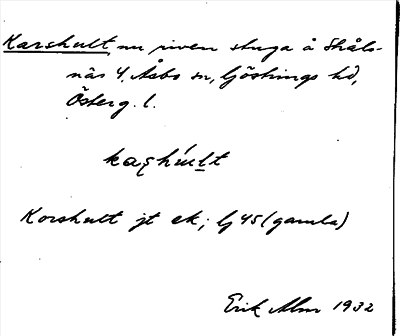 Karshult, nu riven stuga å Skåls-
näs 4, Åsbo sn, Göstrings hd,
Österg. l.
kaʂhu̇lt
Korshult jt ek; Lj 45 (gamla)
Erik Alm 1932